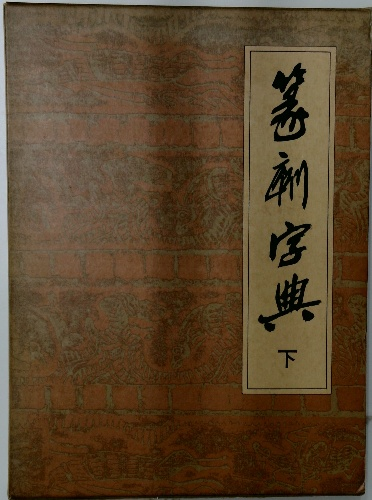 篆刻字典
下